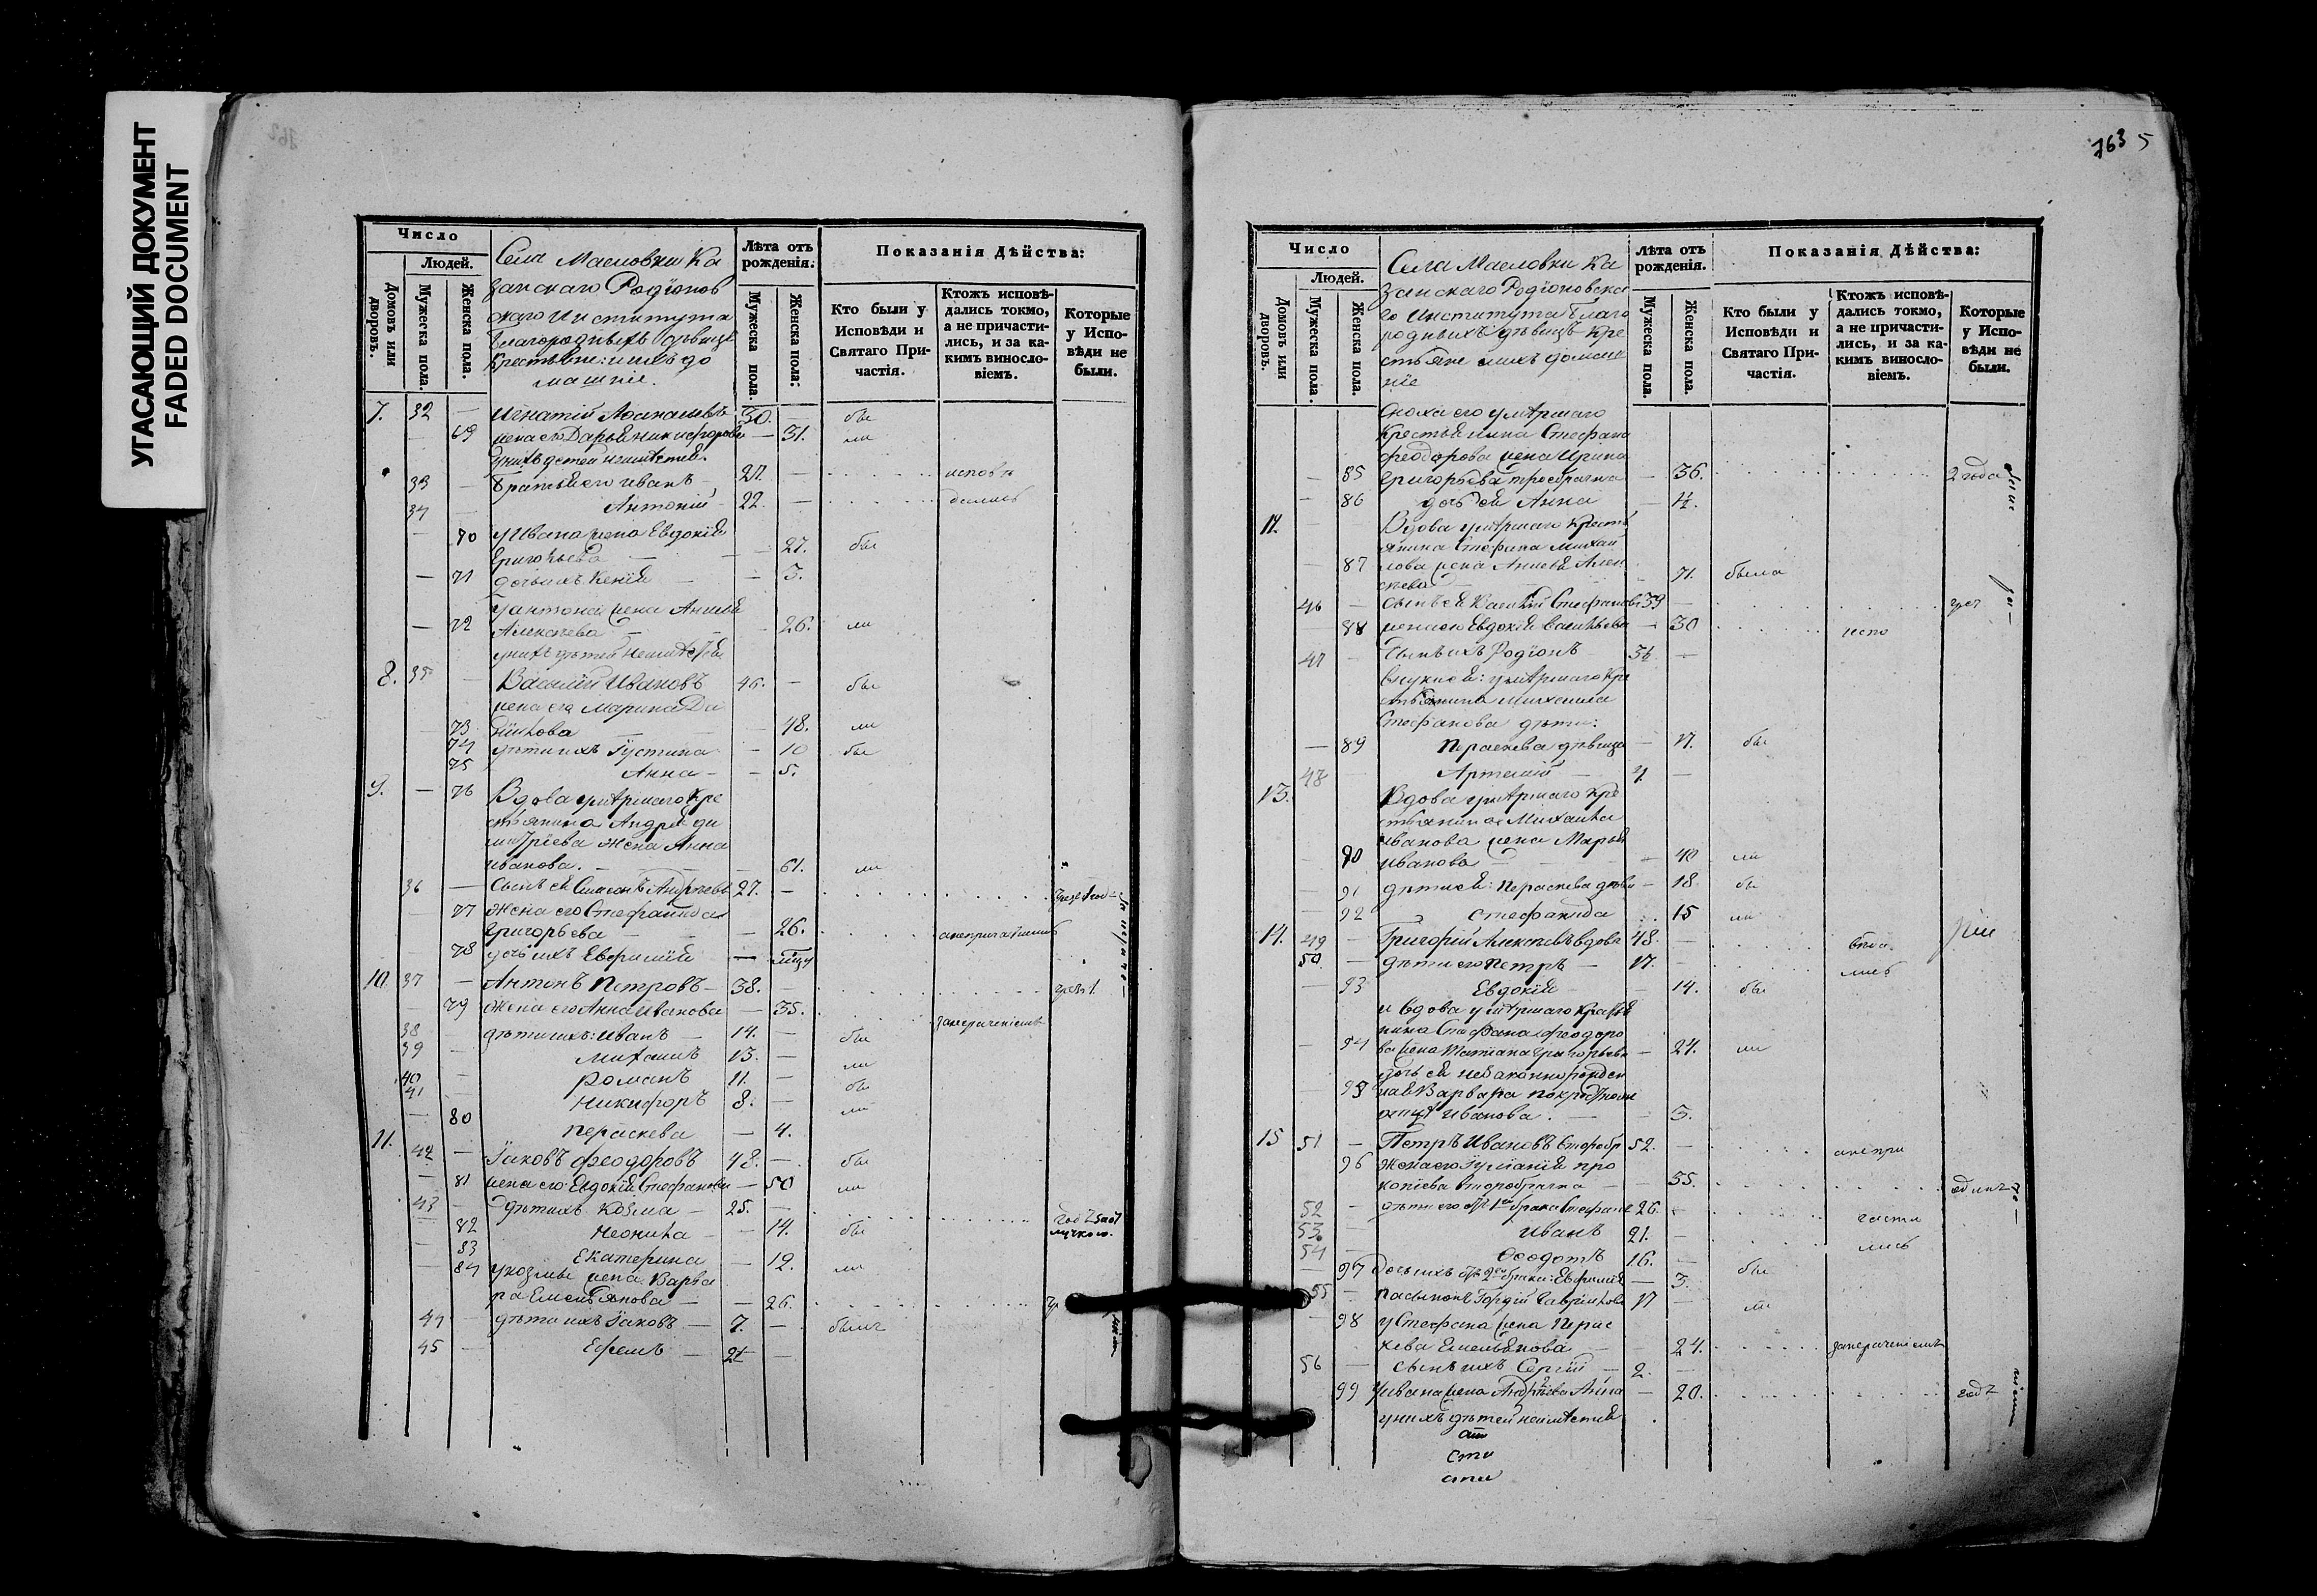 УГАСАЮЩИЙ ДОКУМЕНТ
FADED DOCUMENT
Число
Людей.
Домовъ или дворовъ.
Мужеска пола.
Женска пола.
Села Масловки Ка
занскаго Родіонов
скаго Института
благородныхъ дѣвицъ
Крестьяне: и ихъ до
машніе.
Лѣта отъ рожденія:
Мужеска пола.
Женска пола:
Показанія Дѣйства:
Кто были у Исповѣди и Святаго Причастія.
Ктожъ исповѣдались токмо, а не причастились, и за какимъ винословіемъ.
Которые у Исповѣди не были.
7. 32 — Игнатій Афанасьевъ 30. — бы
— 69 жена его Дарья Никифорова — 31. ли
у нихъ детей неимѣется.
33 — Братья его Иванъ — 27. — исповѣ
34 — Антоній — 22. — дались
— 70 у Ивана жена Евдокія
Григорьева — 27. бы
— 71 дочь ихъ Ксенія — — 3.
у Антонія жена Анисья
— 72 Алексѣева — 26. ли
у нихъ дѣтей неимѣется
8. 35 — Василій Ивановъ 46. — бы
жена его Марина Да
73 нилова — 48. ли
74 дѣти ихъ Іустина — 10 бы
75 Анна — — 5.
9. — 76 Вдова умѣршаго Кре
стьянина Андрея Ди
митріева жена Анна
Иванова. — 61. ли
36 — Сынъ ея Симеонъ Андреевъ 27. —
77 Жена его Стефанида
Григорьева — — 26. анепричастились
— 78 дочь ихъ Евфимія —
10. 37 — Антонъ Петровъ — 38. —
— 79 Жена его Анна Иванова — 35.
занераченіемъ
38 дѣти ихъ: Иванъ — 14. — бы
39 — Михаилъ 13. — ли
40 — Романъ 11. — бы
41 Никифоръ 8. — ли
— 80 Параскева — 4.
11. 42 — Іаковъ Феодоровъ 48. — бы
— 81 жена его Евдокія Стефанова — 50 ли
43 — дѣти ихъ Козма — 25. —
— 82 Неонила — — 14. бы
83 Екатерина — 12. ли
84 у Козмы жена Варва
ра Емельянова — — 26.
44 — дѣти ихъ Іаковъ — 7. — были
45 — Ефемъ — 2½ —
763 5
Число
Людей.
Домовъ или дворовъ.
Мужеска пола.
Женска пола.
Села Масловки Ка
занскаго Родіоновска
го Института Благо
родныхъ дѣвицъ Кре
стьяне и ихъ домаш
ніе
Лѣта отъ рожденія.
Мужеска пола.
Женска пола.
Показанія Дѣйства:
Кто были у Исповѣди и Святаго Причастія.
Ктожъ исповѣдались токмо, а не причастились, и за какимъ винословіемъ.
Которые у Исповѣди не были.
Сноха его умѣршаго
Крестьянина Стефана
Феодорова жена Ирина
— 85 Григорьева — 36. 2 года
— 86 дочь ея Анна — 4.
Вдова умѣршаго Кресть
янина Стефана Михай
— 87 лова жена Анисья Алек
сѣева — 71. была
46 — Сынъ ея Василій Стефановъ 39 —
88 жена его Евдокія Васильева — 30 испо
47 — Сынъ ихъ Родіонъ —
Внуки ея: умѣршаго Кре
стьянина Михаила
Стефанова дѣти:
— 89 Параскева дѣвица — 17. бы
48 Артемій — 7. —
13. Вдова умѣршаго Кре
стьянина Михаила
Иванова жена Марья
90 Иванова — 40 ли
— 91 дѣти ея: Параскева дѣви — 18. бы
92 Стефанида 15 ли
14. 49 — Григорій Алексѣевъ вдовъ 48. —
50. — дѣти его Петръ — 17. — лись
— 93 Евдокія — 14. бы
и вдова умѣршаго Крестья
нина Стефана Феодоро
— 94 ва жена Татіана Григорьева — 24. ли
дочь ея незаконнорожден
95 ная Варвара
Иванова. — 3.
15 51 — Петръ Ивановъ второбр 52. — анепри
96 Жена его Іуліанія Про
копіева второбрачна — 35.
52 — дѣти его отъ 1го брака Стефанъ 26. — части
53. — Иванъ 21. — лись
54 — Феодотъ 16. — бы
— 97 Дочь ихъ отъ 2го брака: Евфимія — 3.
55 — пасынокъ Гордій Гавриловъ 17 — ли
— 98 у Стефана жена Парас
кева Емельянова — 24. занераченіемъ
56 — сынъ ихъ Сергій — 2.
99 у Ивана жена Андреева Анна — 20.
у нихъ дѣтей неимѣется.